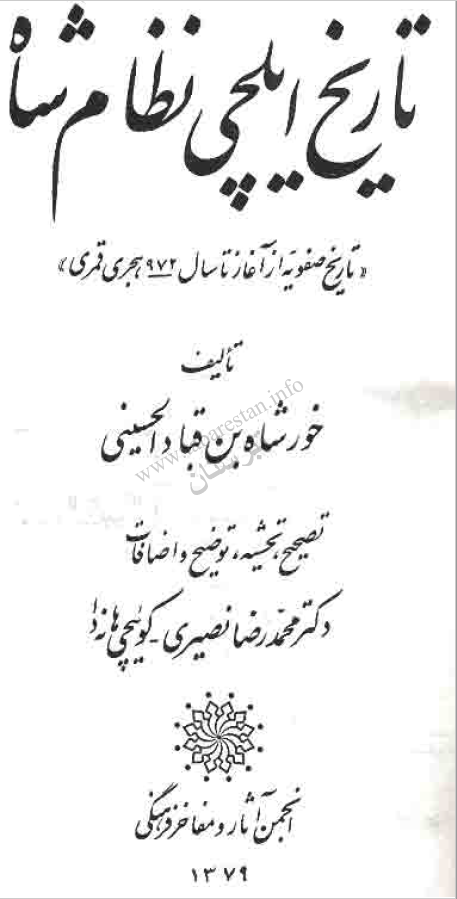 تاریخ ایلچی نظام شاه
«تاریخ صفویه از آغاز تا سال ۹۷۲ هجری قمری»
تألیف
خورشاه بن قباد الحسینی
www.tabarestan.info
تبرستان
تصحیح، تحشیه، توضیح و اضافات
دکتر محمدرضا نصیری - کوئیچی هانه دا
انجمن آثار و مفاخر فرهنگی
۱۳۷۹